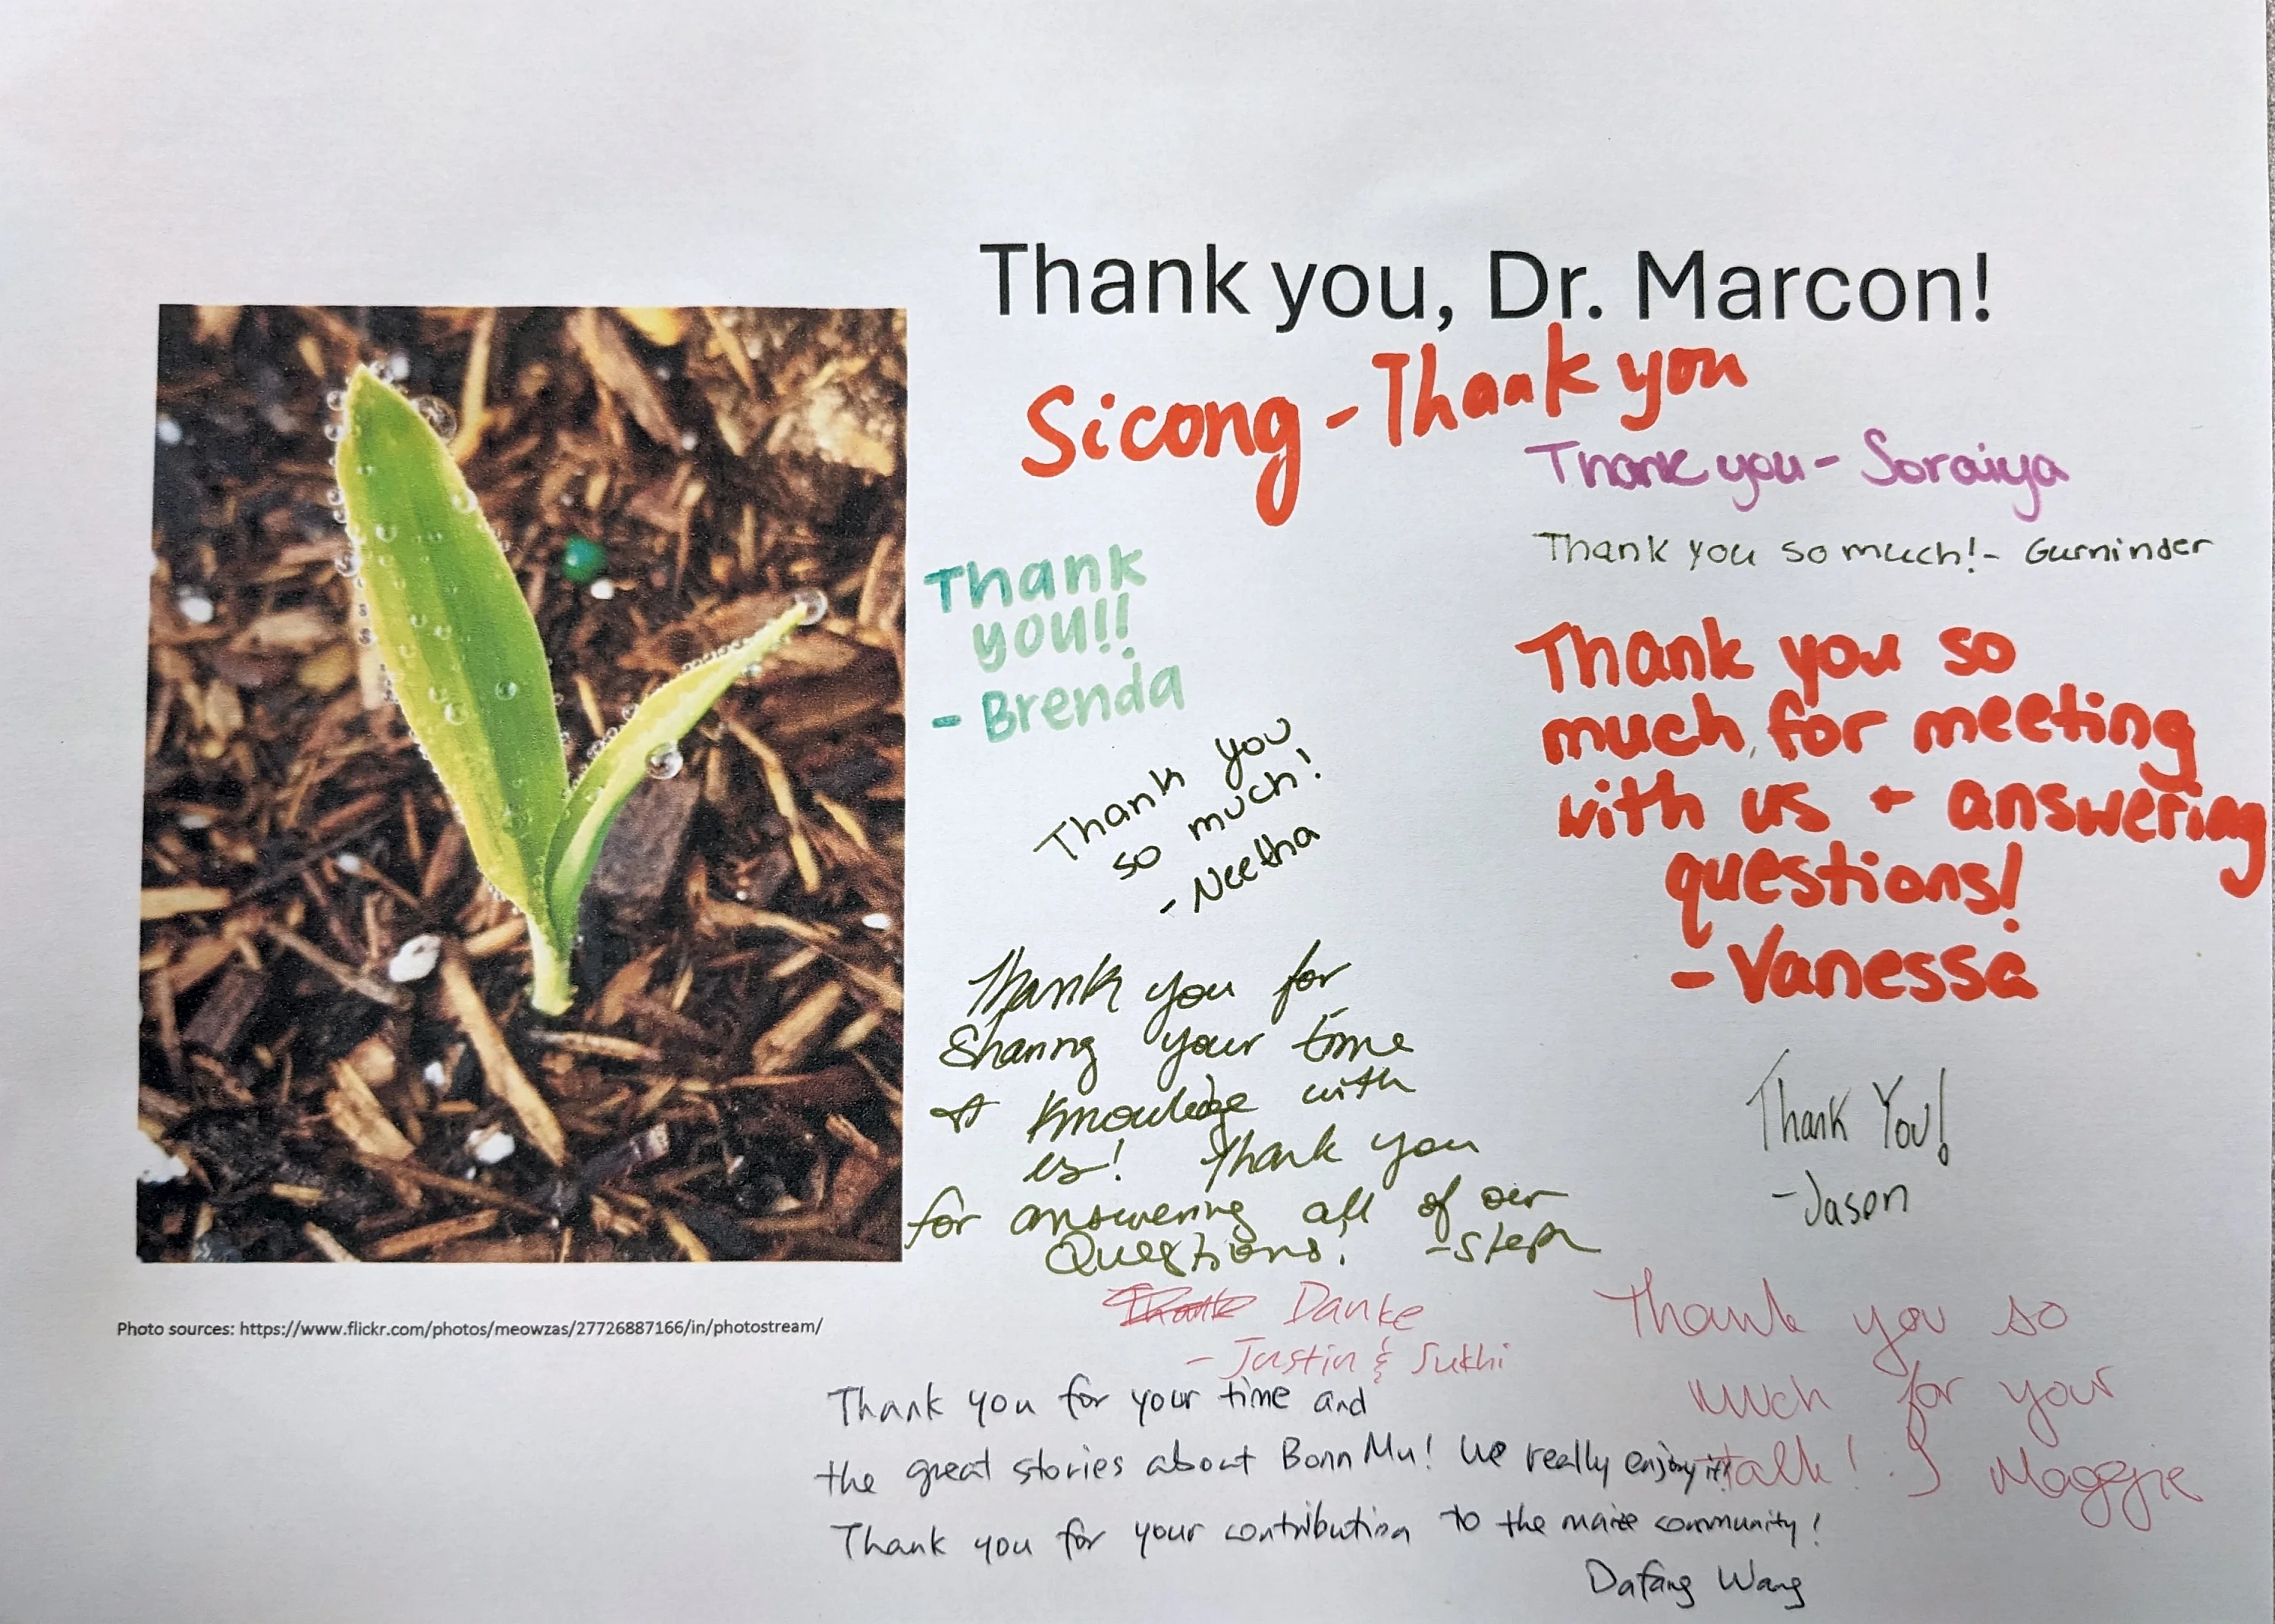 Thank you, Dr. Marcon!
Sicong - Thank you
Thank you - Soraiya
Thank you so much! - Gurninder
Thank
you!!
- Brenda
Thank you so
much, for meeting
with us + answering
questions!
- Vanessa
Thank you
so much!
- Neetha
Thank you for
Sharing your time
& knowledge with
us! Thank you
for answering all of our
Questions! - Steph
Thank You!
- Jason
Danke
- Justin & Sukhi
Thank you so
much for your
talk! Maggie
Photo sources: https://www.flickr.com/photos/meowzas/27726887166/in/photostream/
Thank you for your time and
the great stories about BonnMu! We really enjoy it!
Thank you for your contribution to the maize community!
Dafang Wang